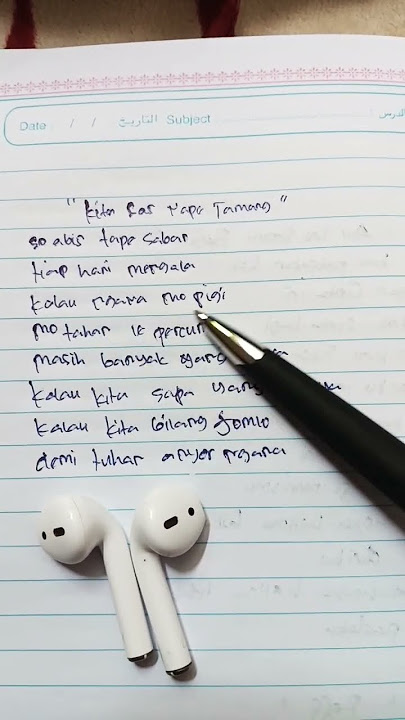 Date / / التاريخ Subject الدرس:
"kita kas tape Tamang"
so abis tape sabar
tiap hari mengala
kalau ngana mo pigi
mo tahan le percun
masih banyak yang
kalau kita sapa yang
kalau kita bilang jomlo
demi tuhan anjer ngana